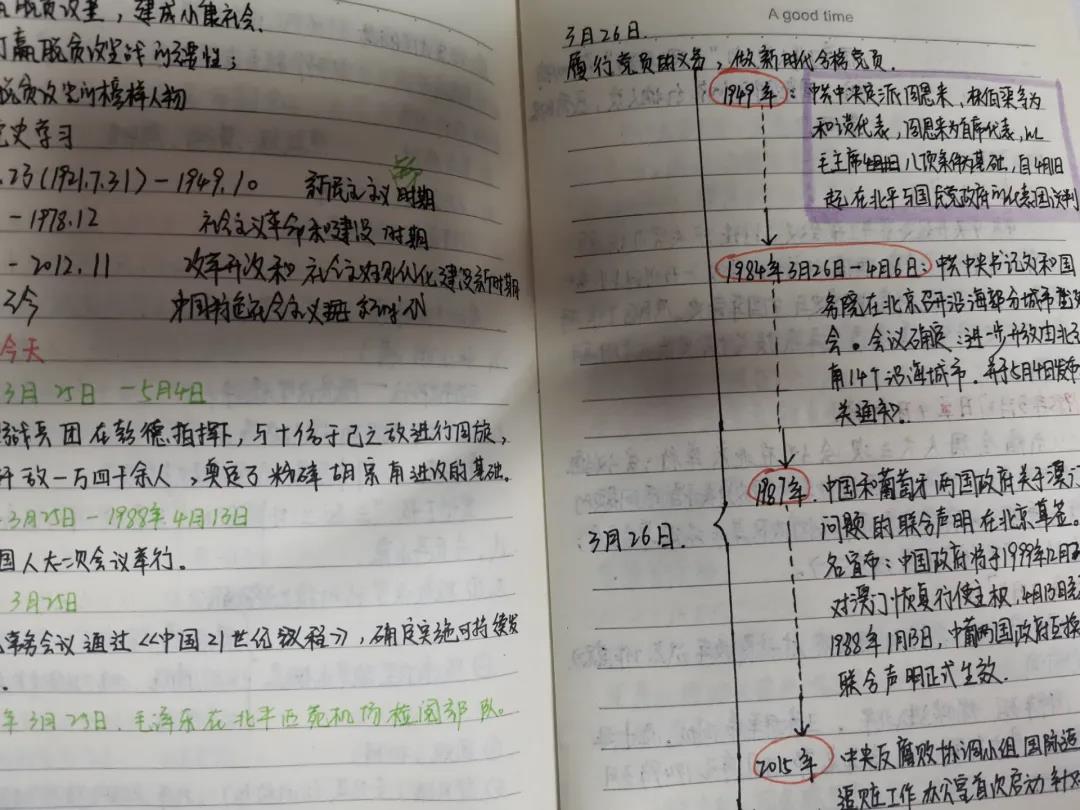 脱贫攻坚，建成小康社会.
打赢脱贫攻坚战的重要性；
脱贫攻坚的榜样人物
党史学习
.23(1921.7.31)－1949.10 新民主主义 时期
－1978.12 社会主义革命和建设时期
－2012.11 改革开放和社会主义现代化建设新时期
至今 中国特色社会主义
今天
3月25日 －5月4日
战兵团在彭德指挥下，与十倍于己之敌进行周旋，
歼敌一万四千余人，奠定了粉碎胡宗南进攻的基础。
3月25日－1988年4月13日
国人大一次会议举行。
3月25日
常务会议通过《中国21世纪议程》，确定实施可持续发
年3月25日，毛泽东在北平西苑机场检阅部队。
A good time
3月26日.
履行党员的义务，做新时代合格党员.
1949年：中共中央决定派周恩来，林伯渠等为
和谈代表，周恩来为首席代表，以
毛主席 八项条件为基础，自4月1日
起，在北平与国民党政府的代表团谈判
1984年3月26日－4月6日：中共中央书记处和国
务院在北京召开沿海部分城市座谈
会。会议确定：进一步开放由北至
南14个沿海城市，并于5月4日发布
关通知。
3月26日.
1987年 中国和葡萄牙两国政府关于澳门
问题的联合声明在北京草签。
名宣布：中国政府将于1999年12月20
对澳门恢复行使主权，4月13日
1988年1月15日，中葡两国政府互换
联合声明正式生效.
2015年 中央反腐败协调小组国际追
追赃工作办公室首次启动针对